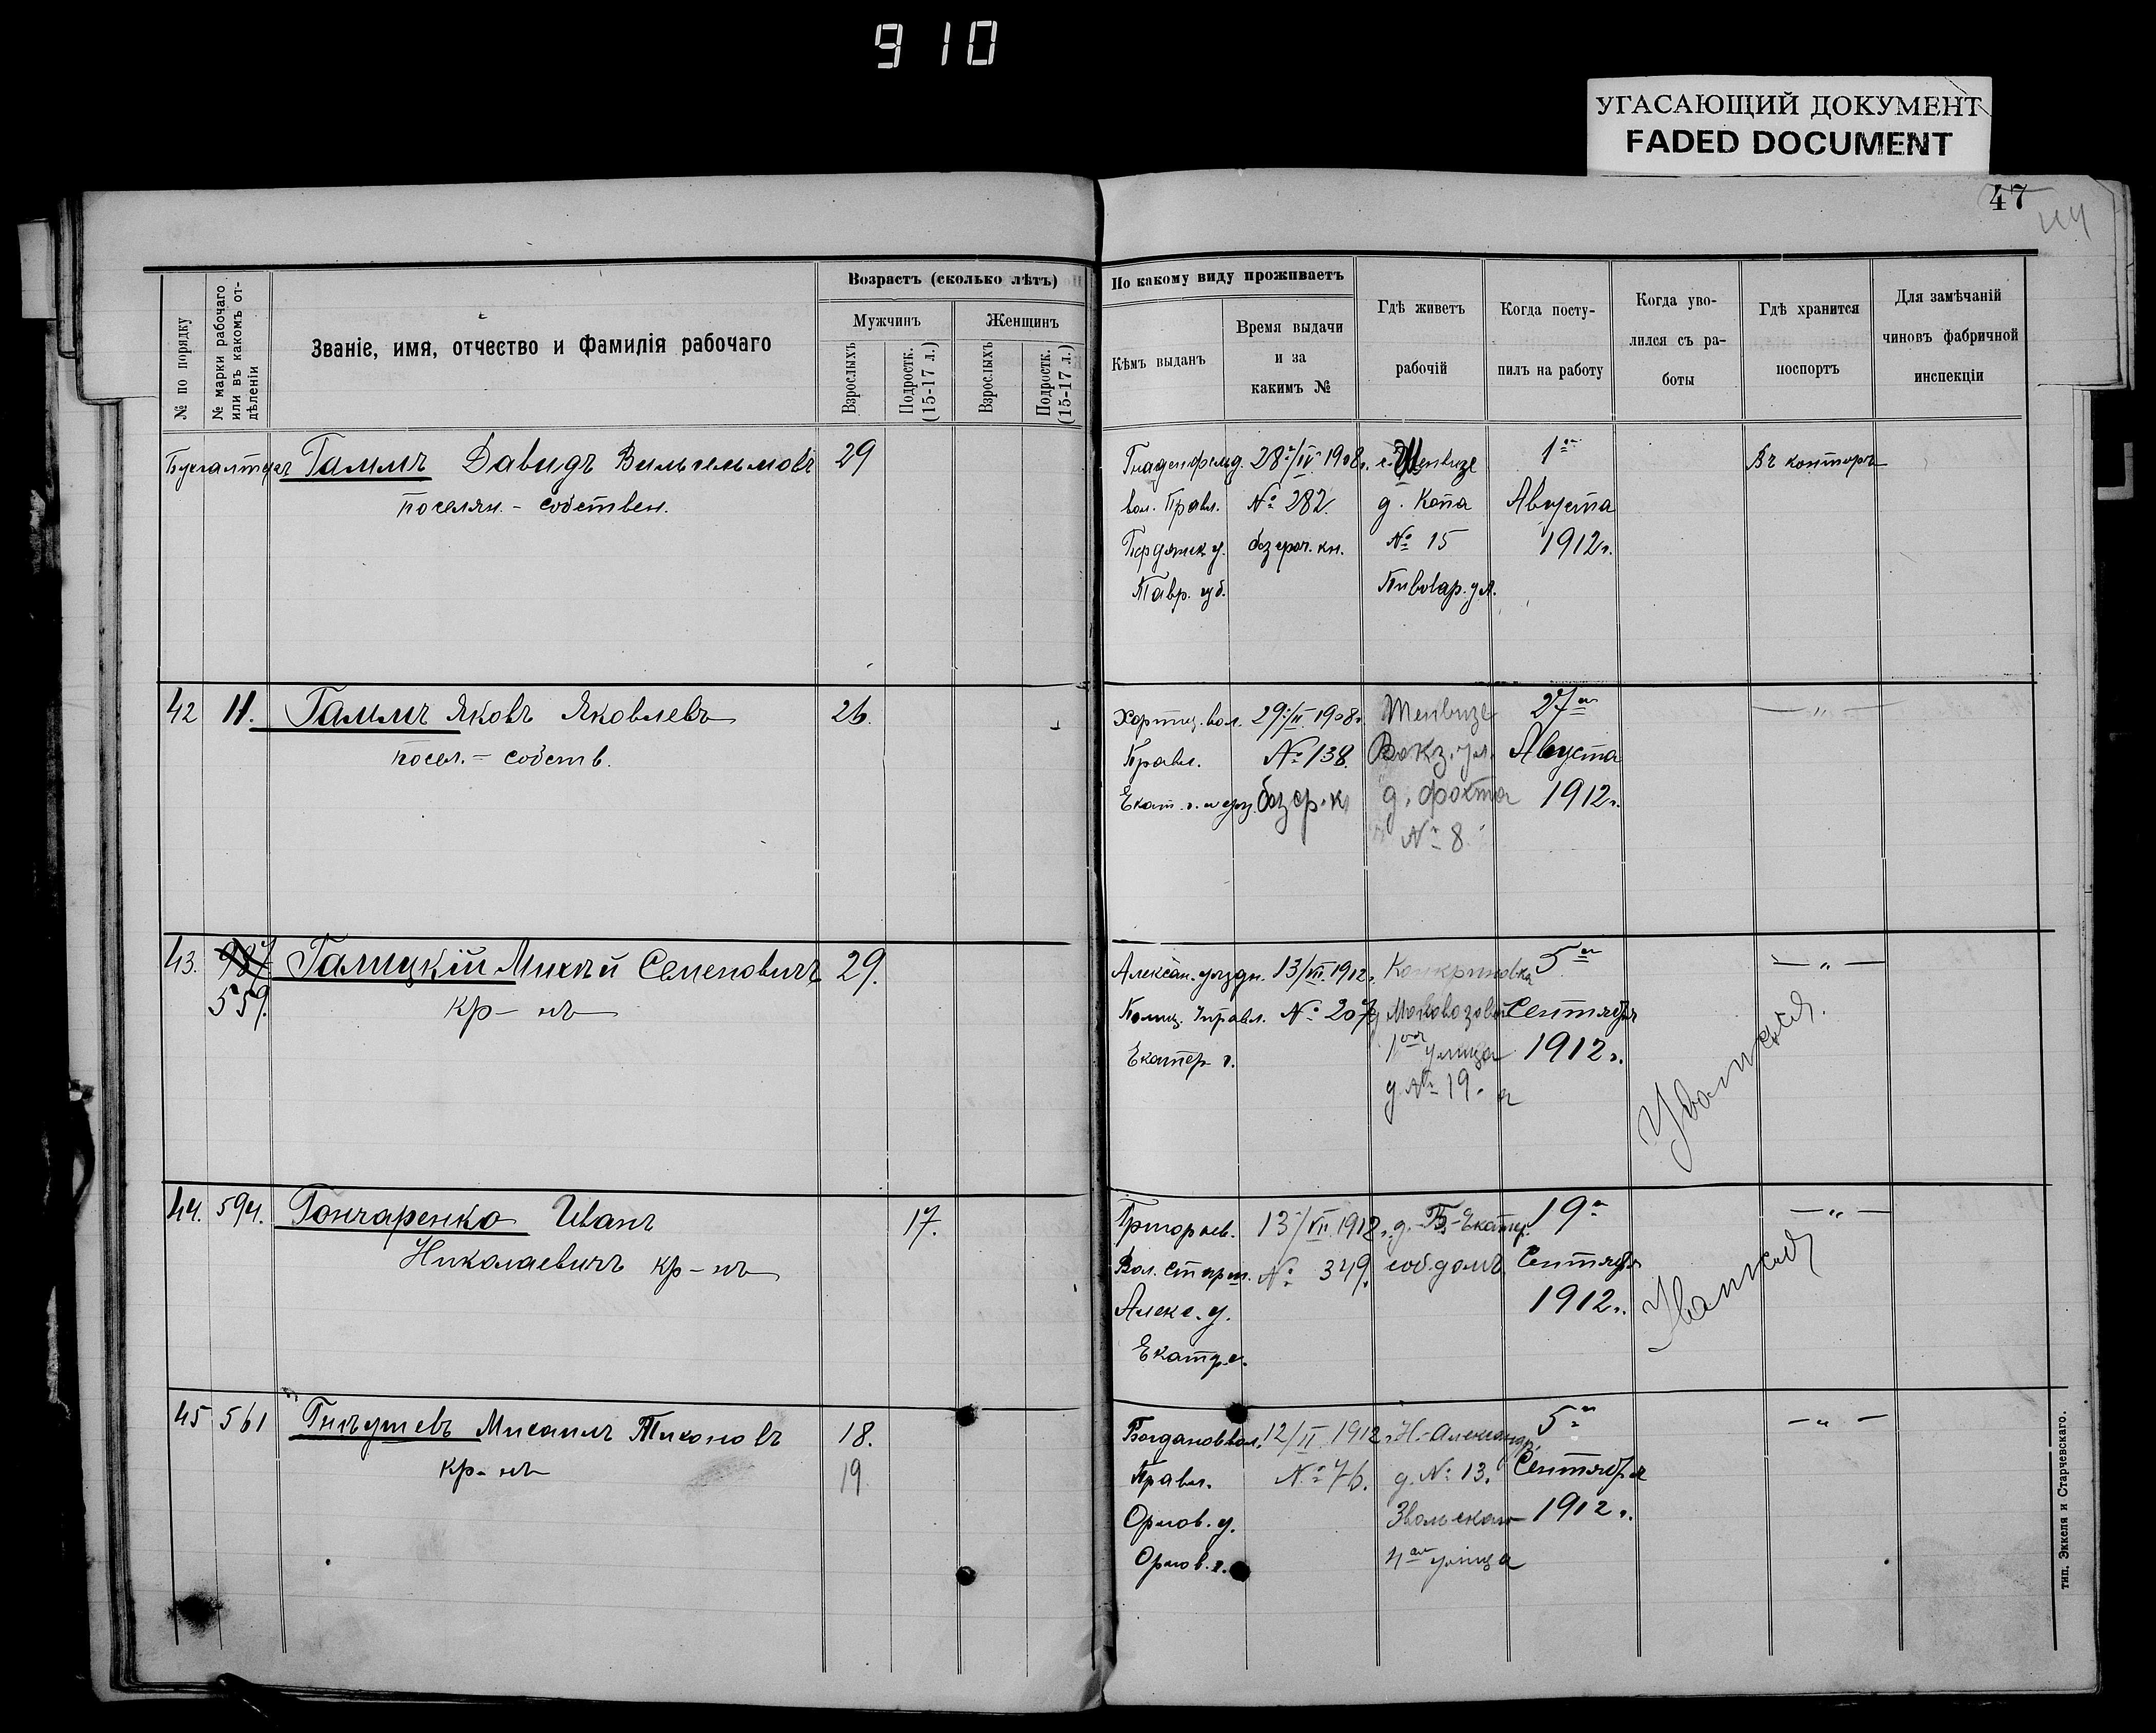 910
УГАСАЮЩИЙ ДОКУМЕНТ
FADED DOCUMENT
47
№ по порядку
№ марки рабочаго или въ какомъ отдѣленіи
Званіе, имя, отчество и фамилія рабочаго
Возрастъ (сколько лѣтъ)
Мужчинъ
Женщинъ
Взрослыхъ
Подростк. (15-17 л.)
Взрослыхъ
Подростк. (15-17 л.)
По какому виду проживаетъ
Кѣмъ выданъ
Время выдачи
и за
какимъ №
Гдѣ живетъ
рабочій
Когда посту-
пилъ на работу
Когда уво-
лился съ ра-
боты
Гдѣ хранится
поспортъ
Для замѣчаній
чиновъ фабричной
инспекціи
Бухгалтеръ Гаммъ Давидъ Вильгельмовъ 29
поселян. - собствен.
Гнаденфельд. 28/IV 1908г. Шенвизе 1го Въ конторѣ
вол. Правл. № 282. д. Копа Августа
Бердянск у. безсроч. кн. № 15 1912г.
Тавр. губ. Пивовар. ул.
42 11. Гаммъ Яковъ Яковлевъ 26.
посел. - собств.
Хортиц. вол. 29/II 1908г. Шенвизе 27го — " —
Правл. № 138. Вокз. ул. Августа
Екат. г. безср. к. д. Фохта 1912г.
№ 8
43. 987 Галицкій Михей Семеновичъ 29.
559. кр-нъ
Алексан. уѣздн. 13/VII 1912г. Конкриновка 5го — " —
Полиц. Управл. № 207 Сентября
Екатер г. 1ая улица 1912г.
д. № 19.
Уволился.
44. 594. Гончаренко Иванъ 17.
Николаевичъ кр-нъ
Григорьев. 13/VII 1912г. д. Б-Екатер. 19го — " —
Вол. старш. № 349. соб. домъ. Сентября
Алекс. у. 1912г.
Екатр. г.
Уволился
45 561 Гнѣушевъ Михаилъ Тихоновъ 18.
кр-нъ 19.
Богданов. вол. 12/II 1912г. Н.-Александр. 5го — " —
Правл. № 76. д. № 13. Сентября
Орлов. у. 1912г.
Орлов. г. 4ая улица
тип. Эккеля и Старчевскаго.